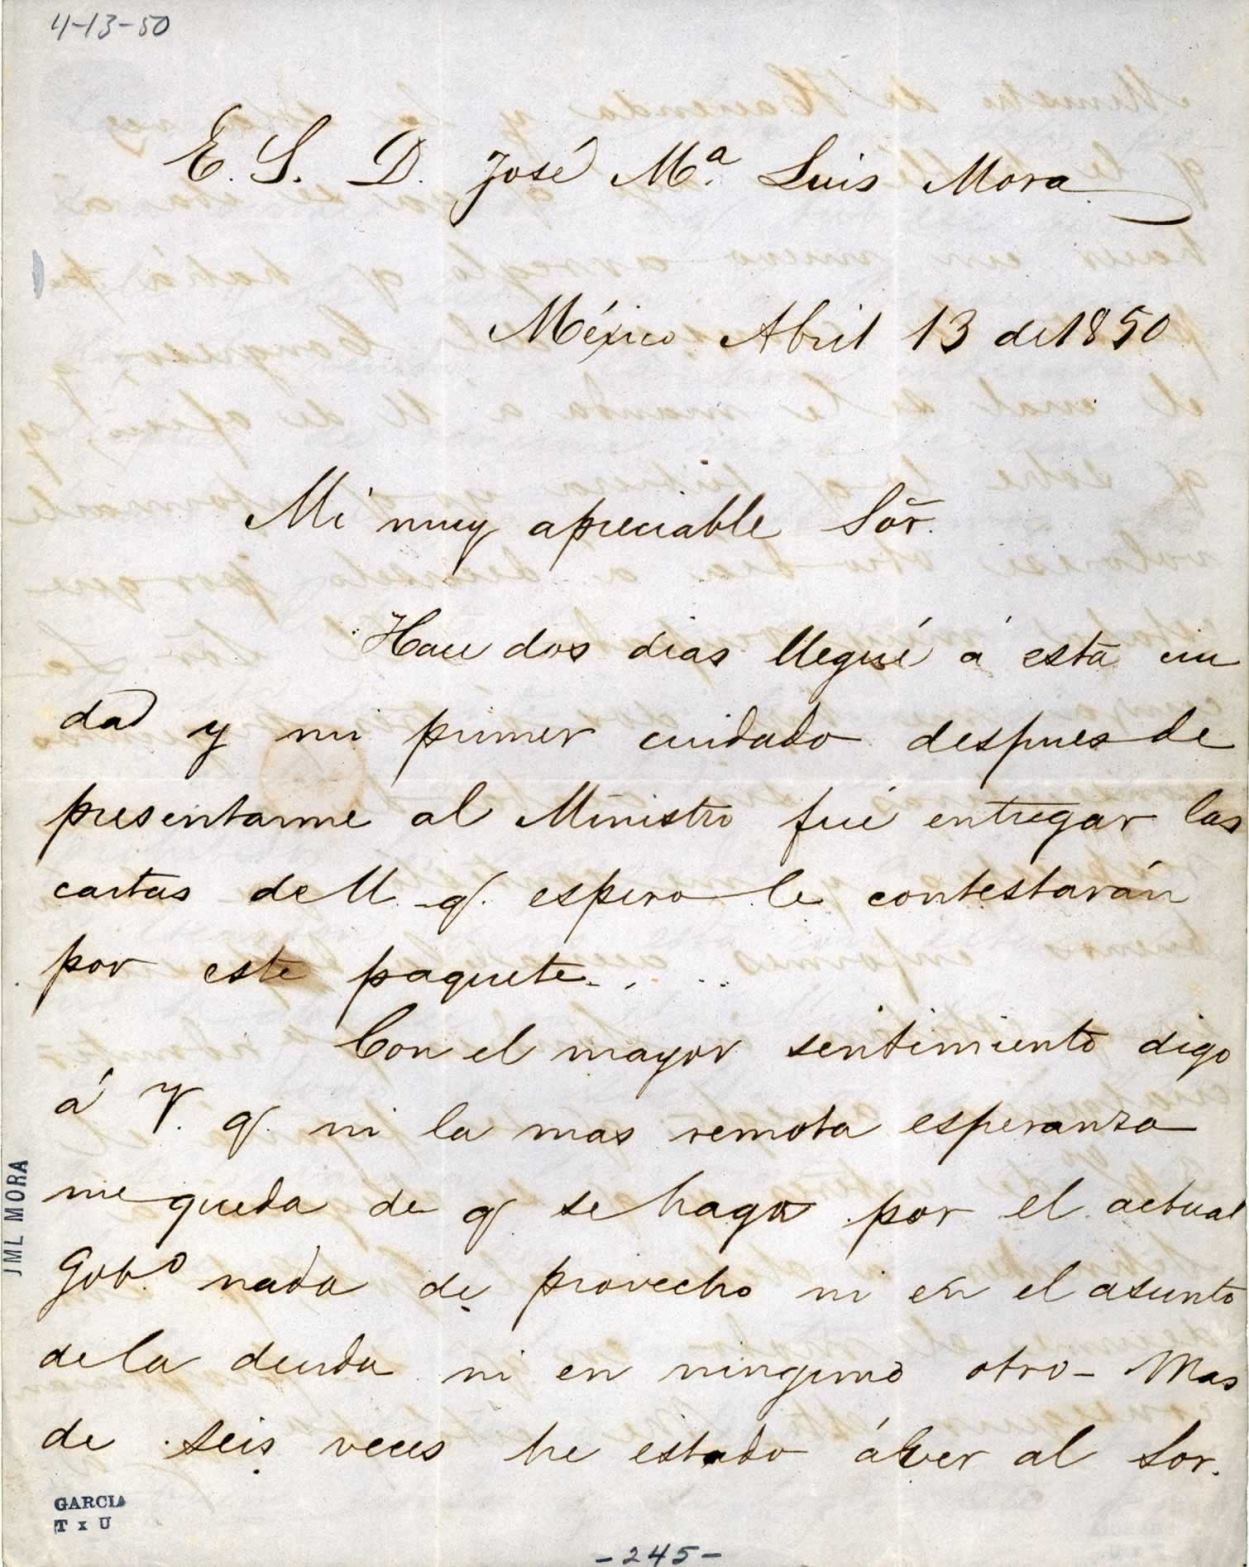 4-13-50
E. S. D. José Mª. Luis Mora
México Abril 13 de 1850
Mi muy apreciable Sõr.
Hace dos dias llegué á esta ciu
dad y mi primer cuidado despues de
presentarme al Ministro fué entregar las
cartas de U. q. espero le contestarán
por este paquete.
Con el mayor sentimiento digo
á V. q. ni la mas remota esperanza
me queda de q se haga por el actual
Gobº. nada de provecho ni en el asunto
de la deuda ni en ninguno otro - Mas
de seis veces he estado á ver al Sor.
JML MORA
GARCIA
T x U
-245-